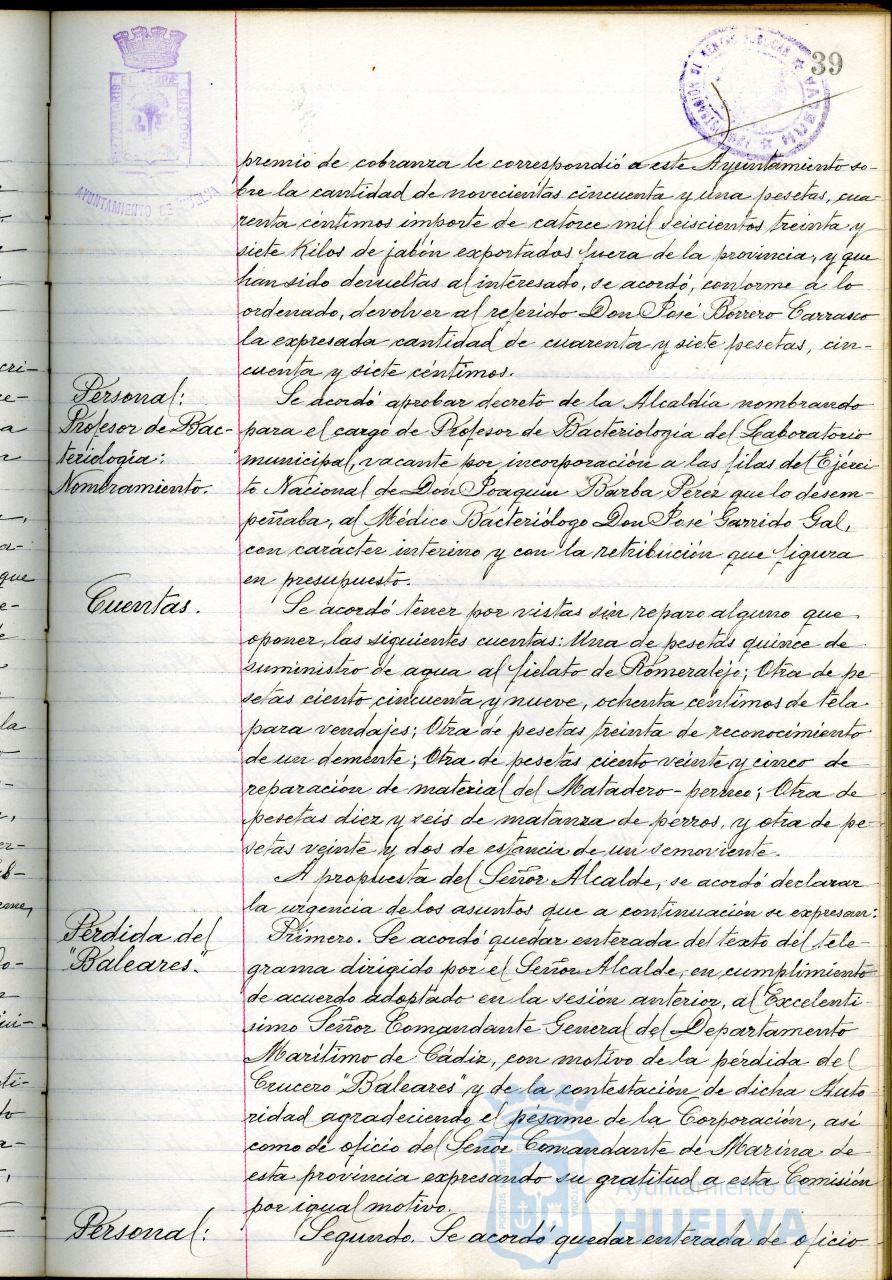 39
AYUNTAMIENTO DE HUELVA
premio de cobranza le correspondió a este Ayuntamiento so-
bre la cantidad de novecientas cincuenta y una pesetas, cua-
renta céntimos importe de catorce mil seiscientos treinta y
siete Kilos de jabón exportados fuera de la provincia, y que
han sido devueltas al interesado, se acordó, conforme a lo
ordenado, devolver al referido Don José Borrero Carrasco
la expresada cantidad de cuarenta y siete pesetas, cin-
cuenta y siete céntimos.
Personal:
Profesor de Bac-
teriología:
Nombramiento.
Se acordó aprobar decreto de la Alcaldía nombrando
para el cargo de Profesor de Bacteriología del Laboratorio
municipal, vacante por incorporación a las filas del Ejérci-
to Nacional de Don Joaquin Barba Pérez que lo desem-
peñaba, al Médico Bacteriólogo Don José Garrido Gal,
con carácter interino y con la retribución que figura
en presupuesto.
Cuentas.
Se acordó tener por vistas sin reparo alguno que
oponer, las siguientes cuentas: Una de pesetas quince de
suministro de agua al fielato de Romeralejo; Otra de pe-
setas ciento cincuenta y nueve, ochenta céntimos de tela
para vendajes; Otra de pesetas treinta de reconocimiento
de un demente; Otra de pesetas ciento veinte y cinco de
reparación de material del Matadero-perneo; Otra de
pesetas diez y seis de matanza de perros, y otra de pe-
setas veinte y dos de estancia de un semoviente.
A propuesta del Señor Alcalde, se acordó declarar
la urgencia de los asuntos que a continuación se expresan:
Pérdida del
"Baleares".
Primero. Se acordó quedar enterada del texto del tele-
grama dirigido por el Señor Alcalde, en cumplimiento
de acuerdo adoptado en la sesión anterior, al Excelenti-
simo Señor Comandante General del Departamento
Marítimo de Cádiz, con motivo de la pérdida del
Crucero "Baleares" y de la contestación de dicha Auto-
ridad agradeciendo el pésame de la Corporación, así
como de oficio del Señor Comandante de Marina de
esta provincia expresando su gratitud a esta Comisión
por igual motivo.
Personal:
Segundo. Se acordó quedar enterada de oficio
Ayuntamiento de
HUELVA